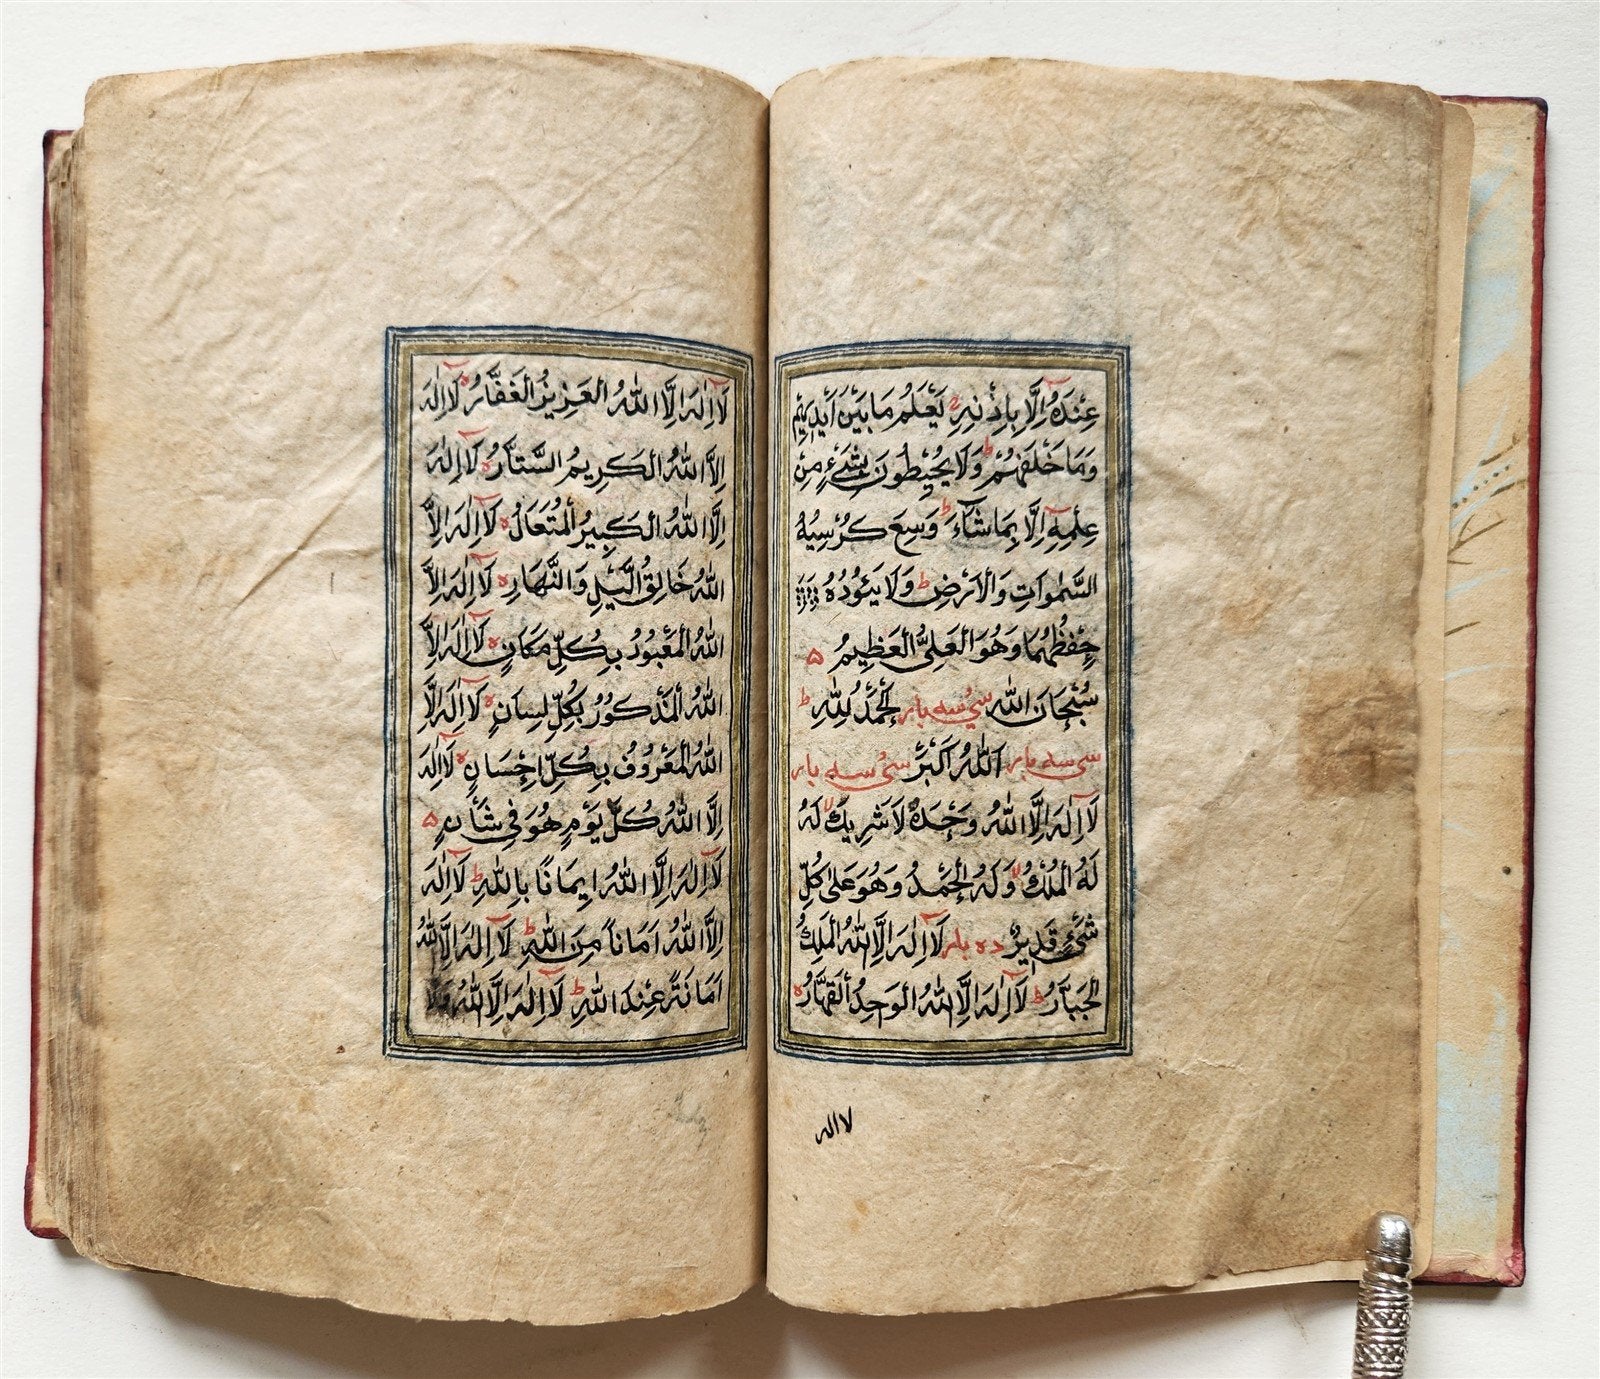 عِنْدَهُ اِلَّا بِاِذْنِهٖ يَعْلَمُ مَا بَيْنَ اَيْدِيْهِمْ
وَمَا خَلْفَهُمْ ط وَلَا يُحِيْطُوْنَ بِشَيْءٍ مِنْ
عِلْمِهٖ اِلَّا بِمَا شَآءَ ط وَسِعَ كُرْسِيُّهُ
السَّمٰوَاتِ وَالْاَرْضَ ط وَلَا يَئُوْدُهُ
حِفْظُهُمَا وَهُوَ الْعَلِىُّ الْعَظِيْمُ ۵
سُبْحَانَ اللّٰهِ سى سه بار اَلْحَمْدُ لِلّٰهِ ط
سى سه بار اَللّٰهُ اَكْبَرُ سى سه بار
لَآ اِلٰهَ اِلَّا اللّٰهُ وَحْدَهُ لَا شَرِيْكَ لَهُ
لَهُ الْمُلْكُ وَلَهُ الْحَمْدُ وَهُوَ عَلٰى كُلِّ
شَىْءٍ قَدِيْرٌ ده بار لَآ اِلٰهَ اِلَّا اللّٰهُ الْمَلِكُ
الْجَبَّارُ ط لَآ اِلٰهَ اِلَّا اللّٰهُ الْوَاحِدُ الْقَهَّارُ ه
لا اله
لَآ اِلٰهَ اِلَّا اللّٰهُ الْعَزِيْزُ الْغَفَّارُ ه لَآ اِلٰهَ
اِلَّا اللّٰهُ الْكَرِيْمُ السَّتَّارُ ه لَآ اِلٰهَ
اِلَّا اللّٰهُ الْكَبِيْرُ الْمُتَعَالُ ه لَآ اِلٰهَ اِلَّا
اللّٰهُ خَالِقُ الَّيْلِ وَالنَّهَارِ ه لَآ اِلٰهَ اِلَّا
اللّٰهُ الْمَعْبُوْدُ بِكُلِّ مَكَانٍ ه لَآ اِلٰهَ اِلَّا
اللّٰهُ الْمَذْكُوْرُ بِكُلِّ لِسَانٍ ه لَآ اِلٰهَ اِلَّا
اللّٰهُ الْمَعْرُوْفُ بِكُلِّ اِحْسَانٍ ه لَآ اِلٰهَ
اِلَّا اللّٰهُ كُلَّ يَوْمٍ هُوَ فِىْ شَأْنٍ ۵
لَآ اِلٰهَ اِلَّا اللّٰهُ اِيْمَانًا بِاللّٰهِ ط لَآ اِلٰهَ
اِلَّا اللّٰهُ اَمَانًا مِنَ اللّٰهِ ط لَآ اِلٰهَ اِلَّا اللّٰهُ
اَمَانَةً عِنْدَ اللّٰهِ ط لَآ اِلٰهَ اِلَّا اللّٰهُ